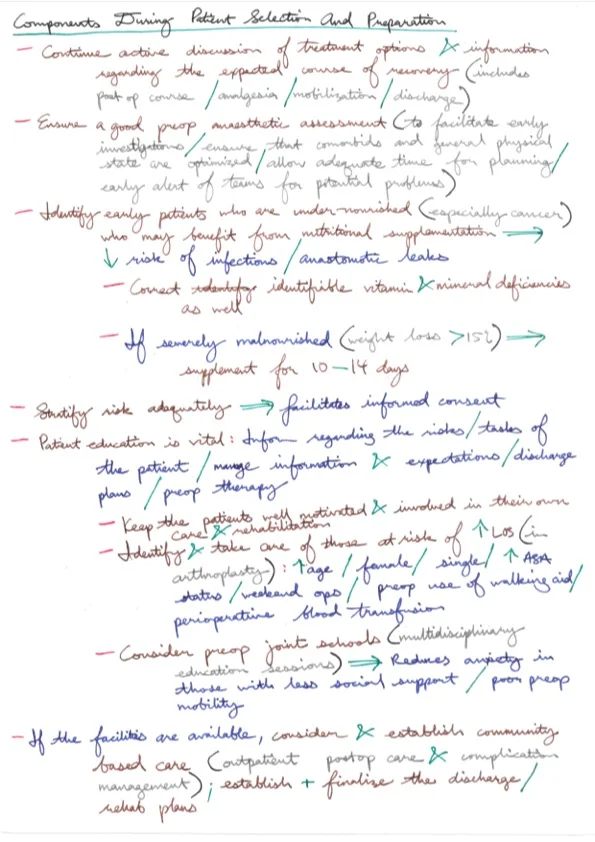 Components During Patient Selection And Preparation
— Continue active discussion of treatment options & information
regarding the expected course of recovery (includes
post op course / analgesia / mobilization / discharge)
— Ensure a good preop anaesthetic assessment (to facilitate early
investigations / ensure that comorbids and general physical
state are optimized / allow adequate time for planning /
early alert of teams for potential problems)
— Identify early patients who are under-nourished (especially cancer)
who may benefit from nutritional supplementation ⟹
↓ risk of infections / anastomotic leaks
— Correct identify identifiable vitamin & mineral deficiencies
as well
— If severely malnourished (weight loss >15%) ⟹
supplement for 10 – 14 days
— Stratify risk adequately ⟹ facilitates informed consent
— Patient education is vital: Inform regarding the risks / tasks of
the patient / manage information & expectations / discharge
plans / preop therapy
— Keep the patients well motivated & involved in their own
care & rehabilitation
— Identify & take care of those at risk of ↑ LOS (in
arthroplasty): ↑ age / female / single / ↑ ASA
status / weekend ops / preop use of walking aid /
perioperative blood transfusion
— Consider preop joint schools (multidisciplinary
education sessions) ⟹ Reduces anxiety in
those with less social support / poor preop
mobility
— If the facilities are available, consider & establish community
based care (outpatient postop care & complication
management); establish + finalize the discharge /
rehab plans